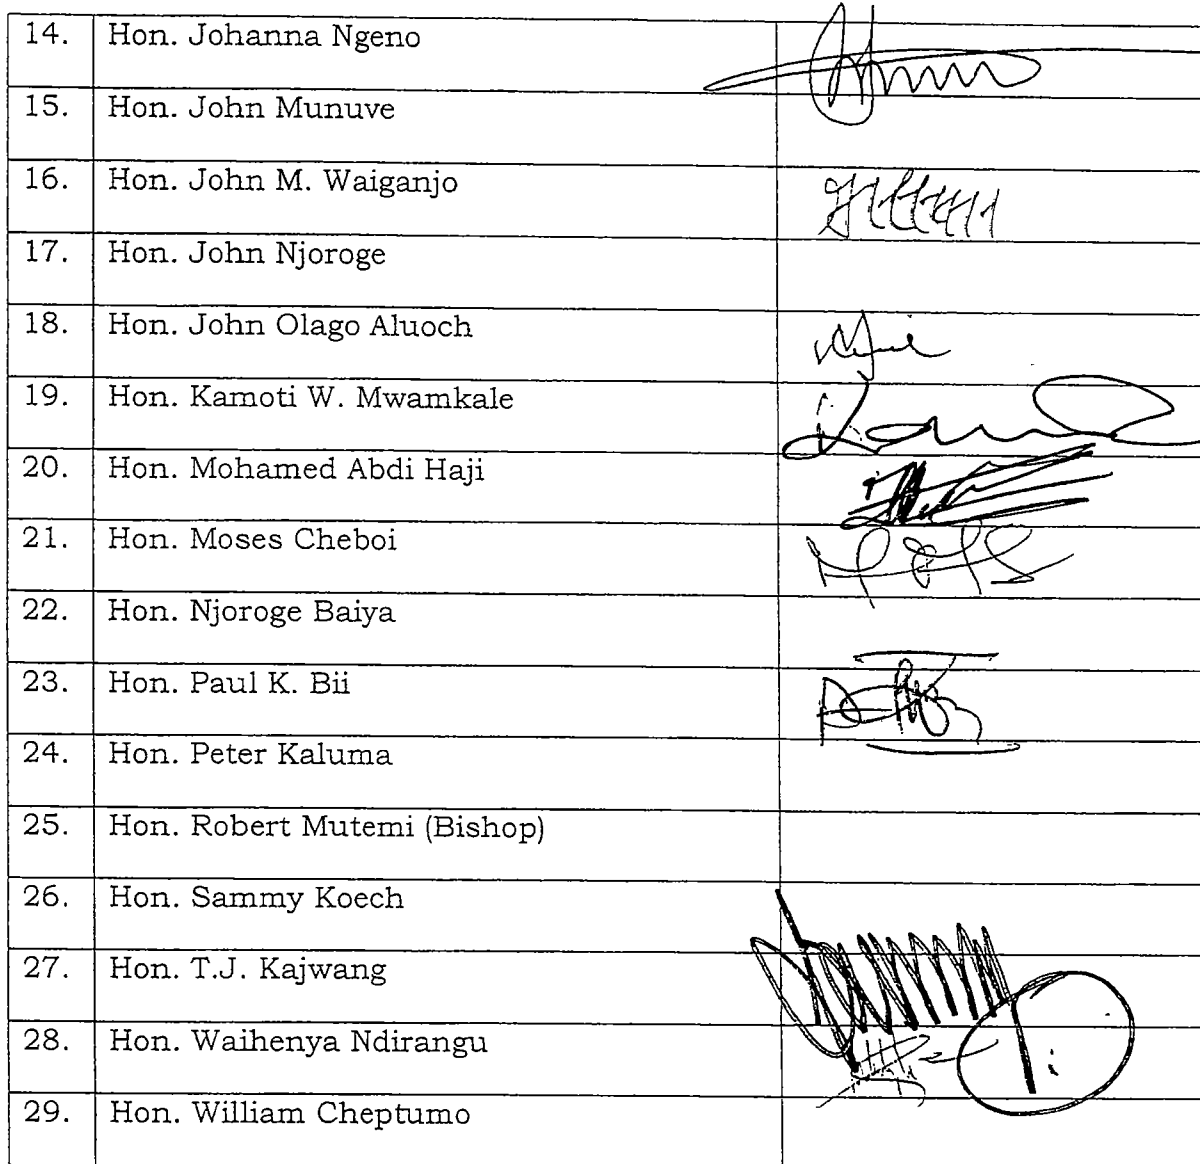 14. Hon. Johanna Ngeno
15. Hon. John Munuve
16. Hon. John M. Waiganjo
17. Hon. John Njoroge
18. Hon. John Olago Aluoch
19. Hon. Kamoti W. Mwamkale
20. Hon. Mohamed Abdi Haji
21. Hon. Moses Cheboi
22. Hon. Njoroge Baiya
23. Hon. Paul K. Bii
24. Hon. Peter Kaluma
25. Hon. Robert Mutemi (Bishop)
26. Hon. Sammy Koech
27. Hon. T.J. Kajwang
28. Hon. Waihenya Ndirangu
29. Hon. William Cheptumo